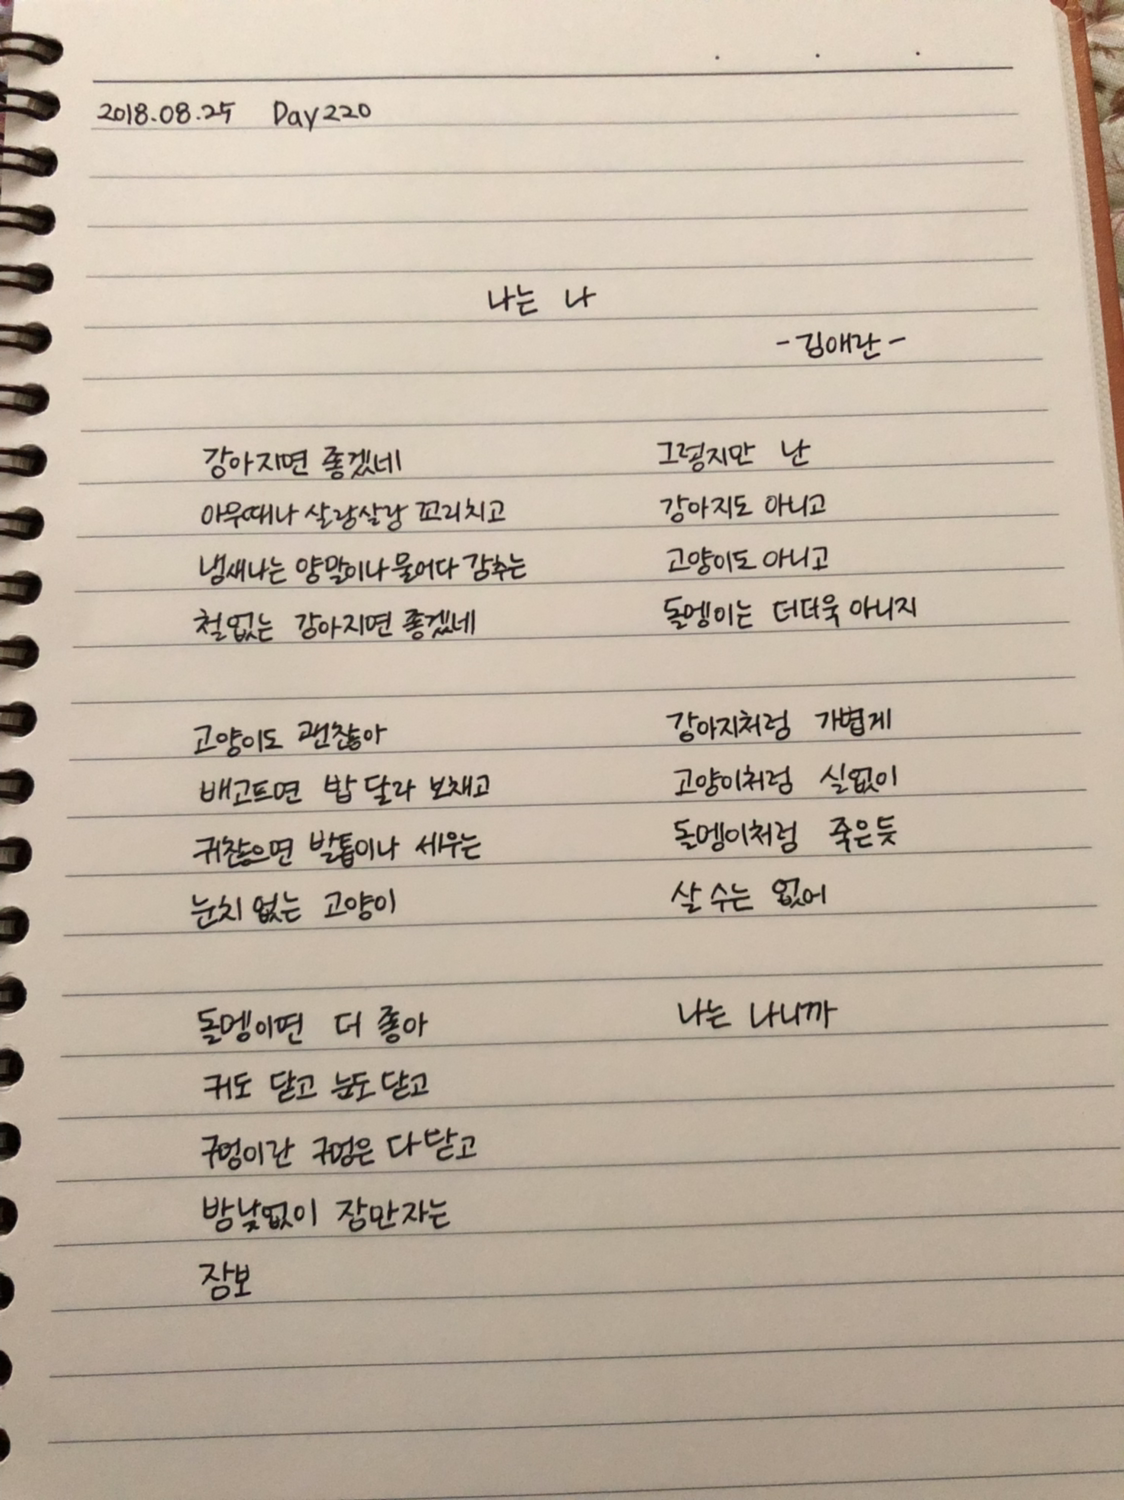 2018.08.25 Day220
나는 나
-김애란-
강아지면 좋겠네
아무때나 살랑살랑 꼬리치고
냄새나는 양말이나 물어다 감추는
철없는 강아지면 좋겠네
고양이도 괜찮아
배고프면 밥 달라 보채고
귀찮으면 발톱이나 세우는
눈치 없는 고양이
돌멩이면 더 좋아
귀도 닫고 눈도 닫고
구멍이란 구멍은 다 닫고
밤낮없이 잠만 자는
잠보
그렇지만 난
강아지도 아니고
고양이도 아니고
돌멩이는 더더욱 아니지
강아지처럼 가볍게
고양이처럼 실없이
돌멩이처럼 죽은듯
살 수는 없어
나는 나니까